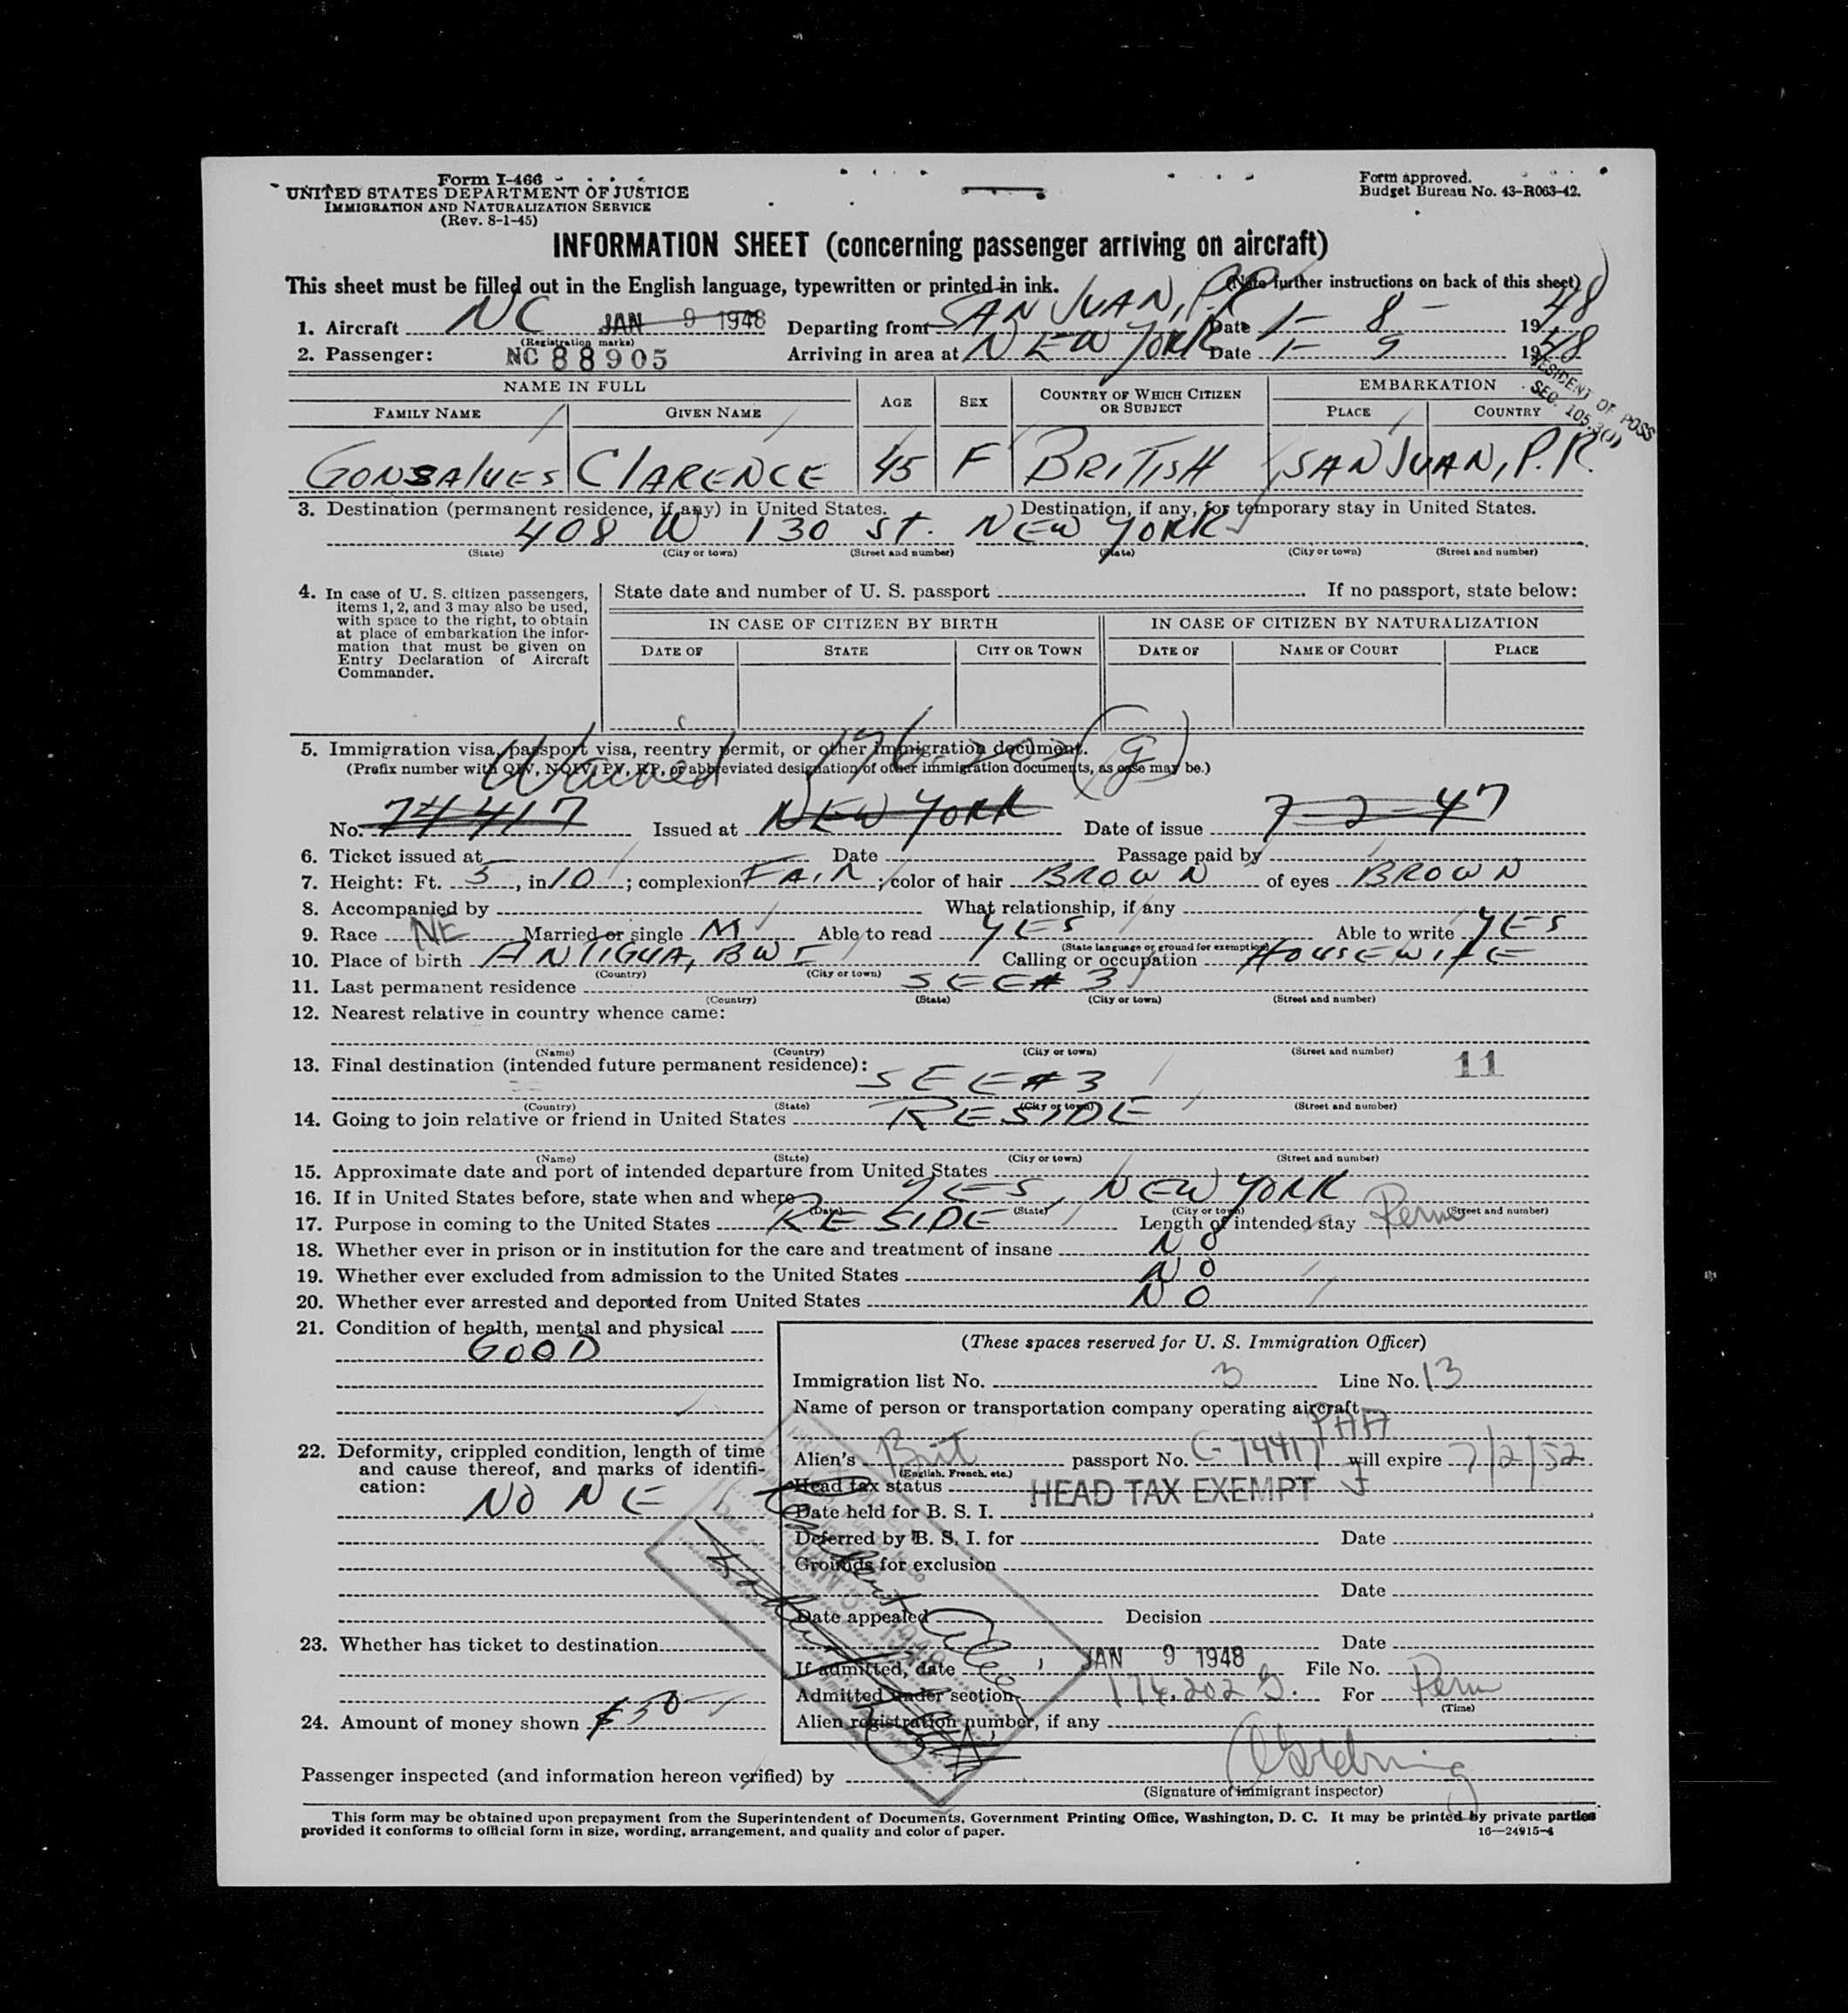 Form I-466
UNITED STATES DEPARTMENT OF JUSTICE
IMMIGRATION AND NATURALIZATION SERVICE
(Rev. 8-1-45)
Form approved.
Budget Bureau No. 43-R063-42.
INFORMATION SHEET (concerning passenger arriving on aircraft)
This sheet must be filled out in the English language, typewritten or printed in ink. (Note further instructions on back of this sheet)
1. Aircraft NC JAN 9 1948 Departing from SAN JUAN, P.R. Date 1-8- 1948
(Registration marks)
2. Passenger: NC 88905 Arriving in area at NEW YORK Date 1-9 1948
RESIDENT OF POSS
SEC. 105.3(J)
NAME IN FULL AGE SEX COUNTRY OF WHICH CITIZEN OR SUBJECT EMBARKATION
FAMILY NAME GIVEN NAME PLACE COUNTRY
GONSALVES CLARENCE 45 F BRITISH SAN JUAN, P.R.
3. Destination (permanent residence, if any) in United States. Destination, if any, for temporary stay in United States.
408 W 130 ST. NEW YORK
(State) (City or town) (Street and number) (State) (City or town) (Street and number)
4. In case of U. S. citizen passengers,
items 1, 2, and 3 may also be used,
with space to the right, to obtain
at place of embarkation the infor-
mation that must be given on
Entry Declaration of Aircraft
Commander.
State date and number of U. S. passport If no passport, state below:
IN CASE OF CITIZEN BY BIRTH IN CASE OF CITIZEN BY NATURALIZATION
DATE OF STATE CITY OR TOWN DATE OF NAME OF COURT PLACE
5. Immigration visa, passport visa, reentry permit, or other immigration document.
(Prefix number with QIV, NQIV, PV, RP, or abbreviated designation of other immigration documents, as case may be.)
Waived 176.202 (g)
No. 74417 Issued at NEW YORK Date of issue 7-2-47
6. Ticket issued at Date Passage paid by
7. Height: Ft. 5, in 10; complexion FAIR; color of hair BROWN of eyes BROWN
8. Accompanied by What relationship, if any
9. Race NE Married or single M Able to read YES Able to write YES
(State language or ground for exemption)
10. Place of birth ANTIGUA, BWI Calling or occupation HOUSEWIFE
(Country) (City or town)
11. Last permanent residence SEE # 3
(Country) (State) (City or town) (Street and number)
12. Nearest relative in country whence came:
(Name) (Country) (City or town) (Street and number)
13. Final destination (intended future permanent residence): SEE # 3 11
(Country) (State) (City or town) (Street and number)
14. Going to join relative or friend in United States RESIDE
(Name) (State) (City or town) (Street and number)
15. Approximate date and port of intended departure from United States
16. If in United States before, state when and where YES, NEW YORK
(Date) (State) (City or town) (Street and number)
17. Purpose in coming to the United States RESIDE Length of intended stay Perm
18. Whether ever in prison or in institution for the care and treatment of insane NO
19. Whether ever excluded from admission to the United States NO
20. Whether ever arrested and deported from United States NO
21. Condition of health, mental and physical
GOOD
22. Deformity, crippled condition, length of time
and cause thereof, and marks of identifi-
cation:
NONE
23. Whether has ticket to destination
24. Amount of money shown $50
(These spaces reserved for U. S. Immigration Officer)
Immigration list No. 3 Line No. 13
Name of person or transportation company operating aircraft
PAA
Alien's Brit passport No. C-74417 will expire 7/2/52
(English, French, etc.)
Head tax status HEAD TAX EXEMPT
Date held for B. S. I.
Deferred by B. S. I. for Date
Grounds for exclusion
Date
Date appealed Decision
Date
If admitted, date JAN 9 1948 File No.
Admitted under section 176.202 For Perm
(Time)
Alien registration number, if any
Passenger inspected (and information hereon verified) by
(Signature of immigrant inspector)
This form may be obtained upon prepayment from the Superintendent of Documents, Government Printing Office, Washington, D. C. It may be printed by private parties
provided it conforms to official form in size, wording, arrangement, and quality and color of paper. 16—24915-4